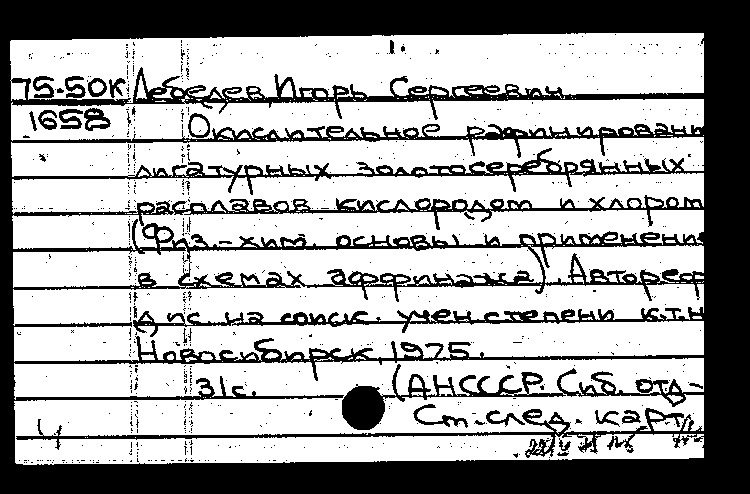 75-50К Лебедев, Игорь Сергеевич
1658 Окислительное рафинировани
лигатурных золотосеребрянных
расплавов кислородом и хлором
(Физ.-хим. основы и применение
в схемах аффинажа). Автореф
дис. на соиск. учен. степени к.т.н
Новосибирск, 1975.
31с. (АН СССР. Сиб. отд-
См. след. карт
4